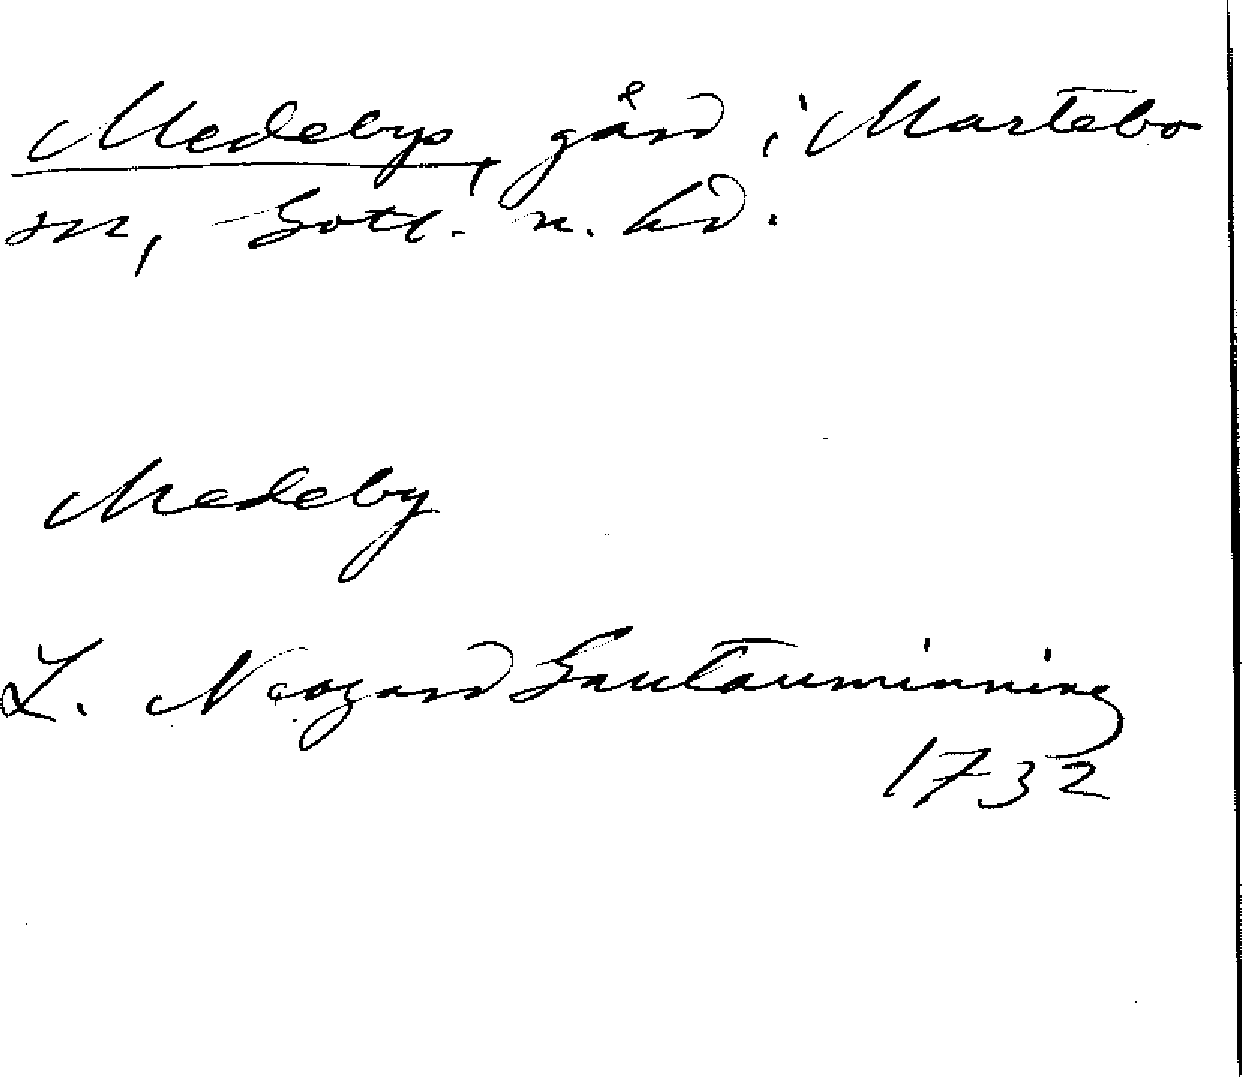 Medebys, gård i Martebo
sn, Gotl. n. hd.
Medeby
L. Neogard Gautauminning
1732